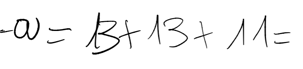 = 13 + 13 + 11 =